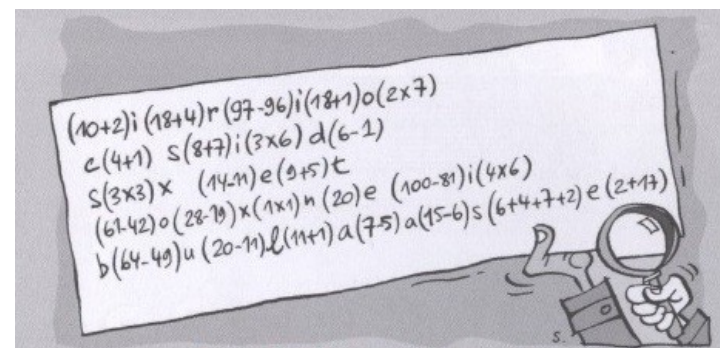 (10+2)i(18+4)r(97-96)i(18+1)o(2x7)
c(4+1) s(8+7)i(3x6) d(6-1)
s(3x3)x (14-11)e(9+5)t
(61-42)o(28-19)x(1x1)n(20)e (100-81)i(4x6)
b(64-49)u(20-11)l(11+1)a(7-5)a(15-6)s(6+4+7+2)e(2+17)
S.